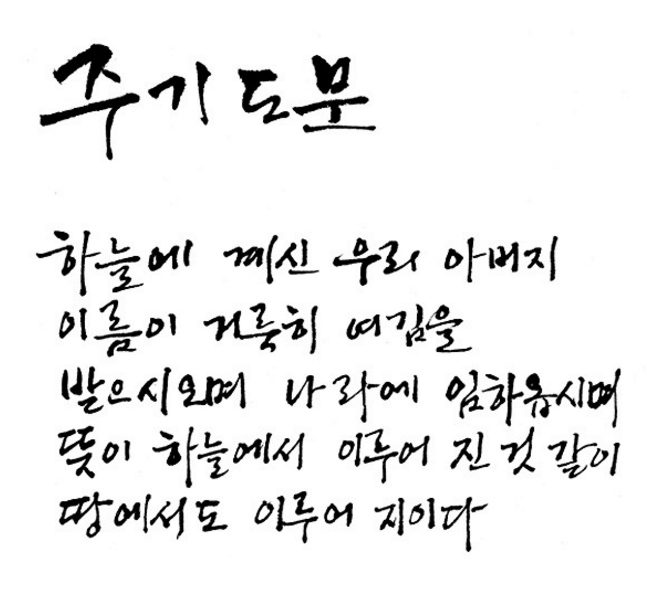 주기도문
하늘에 계신 우리 아버지
이름이 거룩히 여김을
받으시오며 나라에 임하옵시며
뜻이 하늘에서 이루어 진 것 같이
땅에서도 이루어 지이다